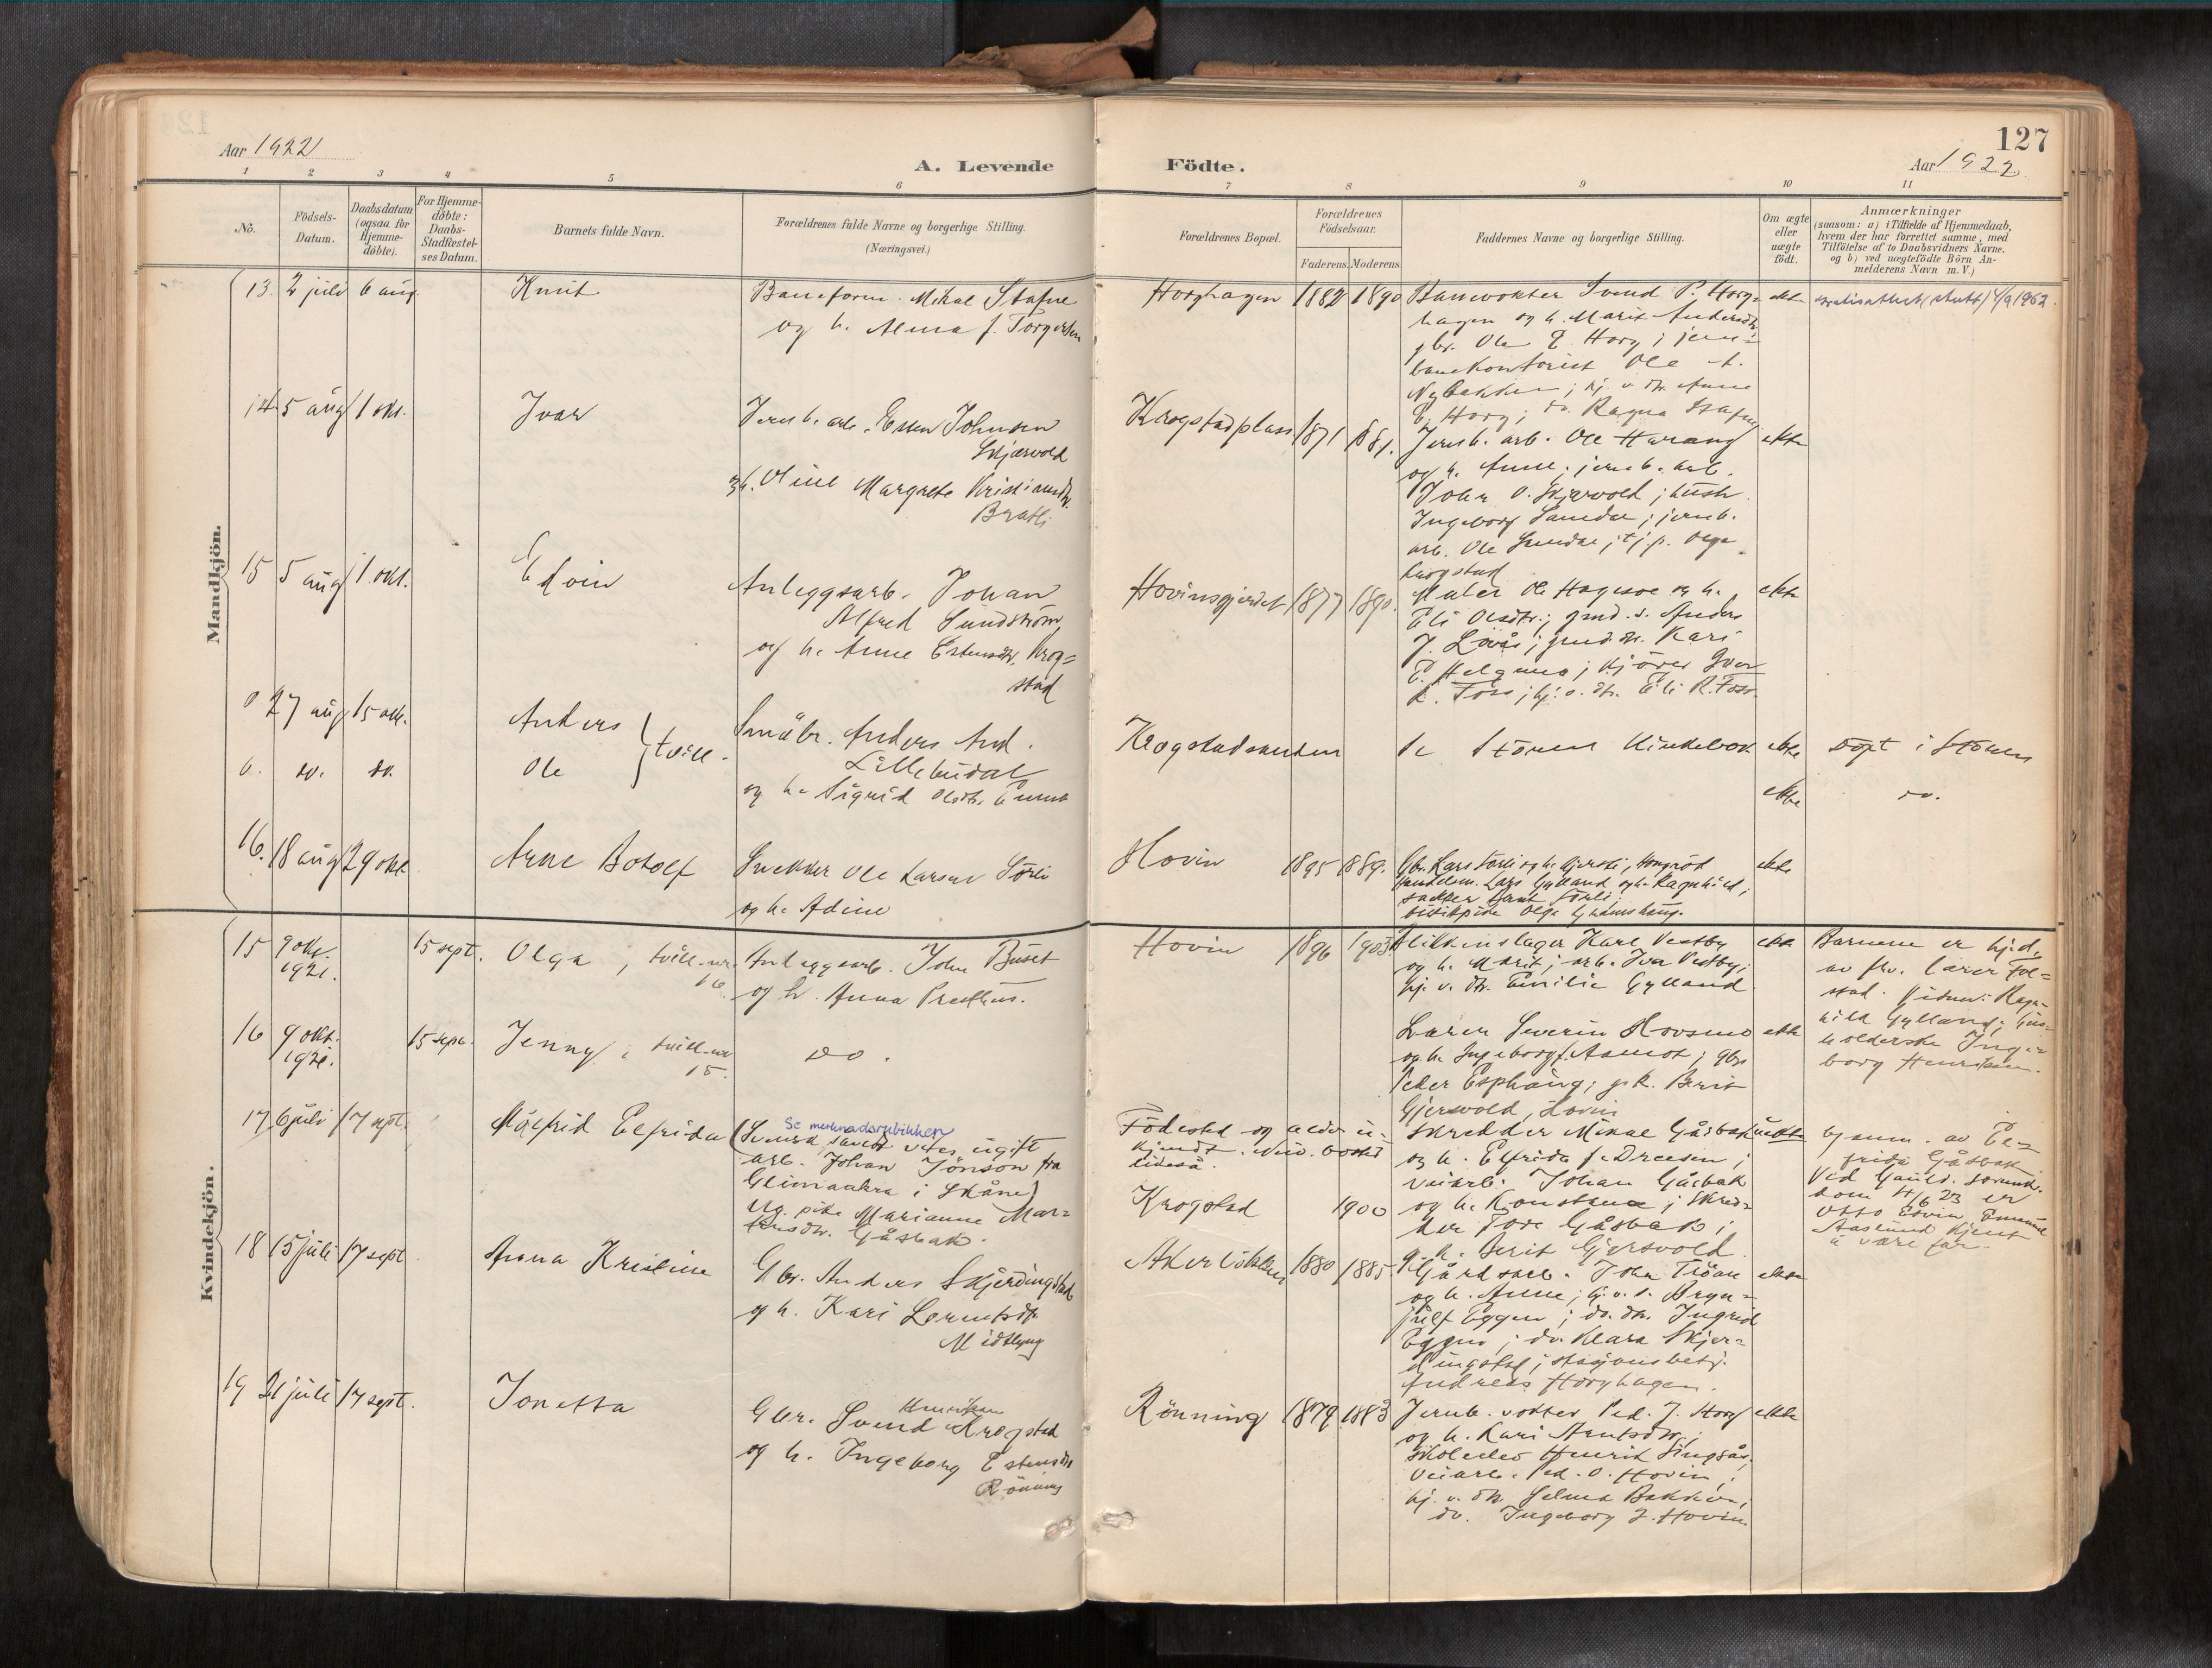 127
Aar 1922
A. Levende Födte.
Aar 1922
1 2 3 4 5 6 7 8 9 10 11
No.
Födsels-Datum.
Daabsdatum (ogsaa for Hjemme-döbte).
For Hjemme-döbte: Daabs-Stadfæstel-ses Datum.
Barnets fulde Navn.
Forældrenes fulde Navne og borgerlige Stilling.
(Næringsvei.)
Forældrenes Bopæl.
Forældrenes Födselsaar.
Faderens. Moderens
Faddernes Navne og borgerlige Stilling.
Om ægte eller uægte födt.
Anmærkninger
(saasom: a) i Tilfælde af Hjemmedaab,
hvem der har forrettet samme, med
Tilföielse af to Daabsvidners Navne.
og b) ved uægtefödte Börn An-
melderens Navn m. V.)
Mandkjön.
13. 2 juli 6 aug. Knut
Baneform. Mikal Stafne
og h. Alma f. Torgersen
Horghagen 1882 1890
Banevokter Svend P. Horg=
hagen og h. Marit Andersdtr.
gbr. Ole E. Horg; jern=
banekontorist Ole
Nybakken; hj. v. dtr. Anne
E. Horg; do. Ragna Stafne
ekte
14. 5 aug 1 okt. Ivar
Jernb. arb. Esten Johnsen
Skjærvold
og h. Oline Margrete Kristiansdtr.
Bratli
Krogstadplass 1871 1881.
Jernb. arb. Ole Harang
og h. Anne; jernb. arb.
John O. Skjervold; hustr.
Ingeborg ; jernb.
arb. Ole ; tj.p. Olga
Krogstad
ekte
15 5 aug 1 okt. Edvin
Anleggsarb. Johan
Alfred Sundström
og h. Anne Estensdtr. Krog=
stad
Hovinsgjerdet 1877 1890.
Maler Ole Hagesve og h.
Eli Olsdtr.; grd. s. Anders
J. Löväs; grd. dtr. Kari
E. Helgemo; kjörer Iver
R. Foss; hj. v. dtr. Eli R. Foss.
ekte
0 27 aug 15 okt. Anders
0. do. do. Ole
} tvill.
Småbr. Anders And.
Lillebudal
og h. Sigrid Olsdtr.
Krogstadsanden
Se Stören kirkebok
ekte döpt i Stören
ekte do.
16. 18 aug 29 okt Arne Botolf
Snekker Ole Larsen Sörli
og h. Adine
Hovin 1895 1889.
Gbr. Lars Sörli og h. , 
Lars Gylland og h. Ragnhild;
Sörli;
Olga
ekte
Kvindekjön.
15 9 okt. 1921. 15 sept. Olga, tvill. nr. 16.
Anleggsarb. John Buset
og h. Anna Presthus.
Hovin 1896 1903
Blikkenslager Karl Vestby
og h. Marit; arb. Ivar Vestby;
hj. v. dtr. Emilie Gylland
ekte
Barnene er hj.d.
av fhv. lærer Fol=
stad. Vidner: Ragn=
hild Gylland; hus=
holderske Inge=
borg Henriksen.
16 9 okt. 1921. 15 sept. Jenny, tvill. nr 15.
do.
Lærer Severin Hovsmo
og h. Ingeborg f. Aamot; gbr.
Peder Esphaug; gk. Berit
Gjersvold, Hovin
ekte
17. 6 juli 17 sept. Målfrid Elfrida
Se merknadsrubrikken
(Svensk ugift
arb. Johan Jönson fra
Glimaakra i Skåne)
ug. pike Marianne Mar=
Gåsbak.
Födested og alder u=
kjendt. Nuv. bosted
likeså.
Krogstad 1900
Skredder Mikal Gåsbak
og h. Elfrida f. Dreesen;
veiarb. Johan Gåsbak
og h. Konstanse; skred=
der Tore Gåsbak;
g. k. Berit Gjersvold
uekte
av El=
frida Gåsbak
Ved Gauld. sorensk.
dom 4/6 23 er
Otto Edvin Emanuel
kjent
å være far.
18 15 juli 17 sept Anna Kristine
Gbr. Anders Skjerdingstad
og h. Kari Lorentsdtr.
Midtlyng
1880 1885.
Gårdsarb. John Tröan
og h. Anne; hj. v. s. Bryn=
julf Eggen; do. dtr. Ingrid
Eggen; do. Klara Skjer=
dingstad; stasjonsbetj.
Andreas Horghagen.
ekte
19 21 juli 17 sept. Jonetta
Gbr. Svend Henriksen Krogstad
og h. Ingeborg Estensdtr
Rönning
Rönning 1879 1883
Jernb. vokter Ped. J. Horg
og h. Kari Arntsdtr.;
skoleelev Henrik Singsås;
veiarb. Ped. O. Hovin;
hj. v. dtr. Selma Bakken;
do. Ingeborg J. Hovin.
ekte